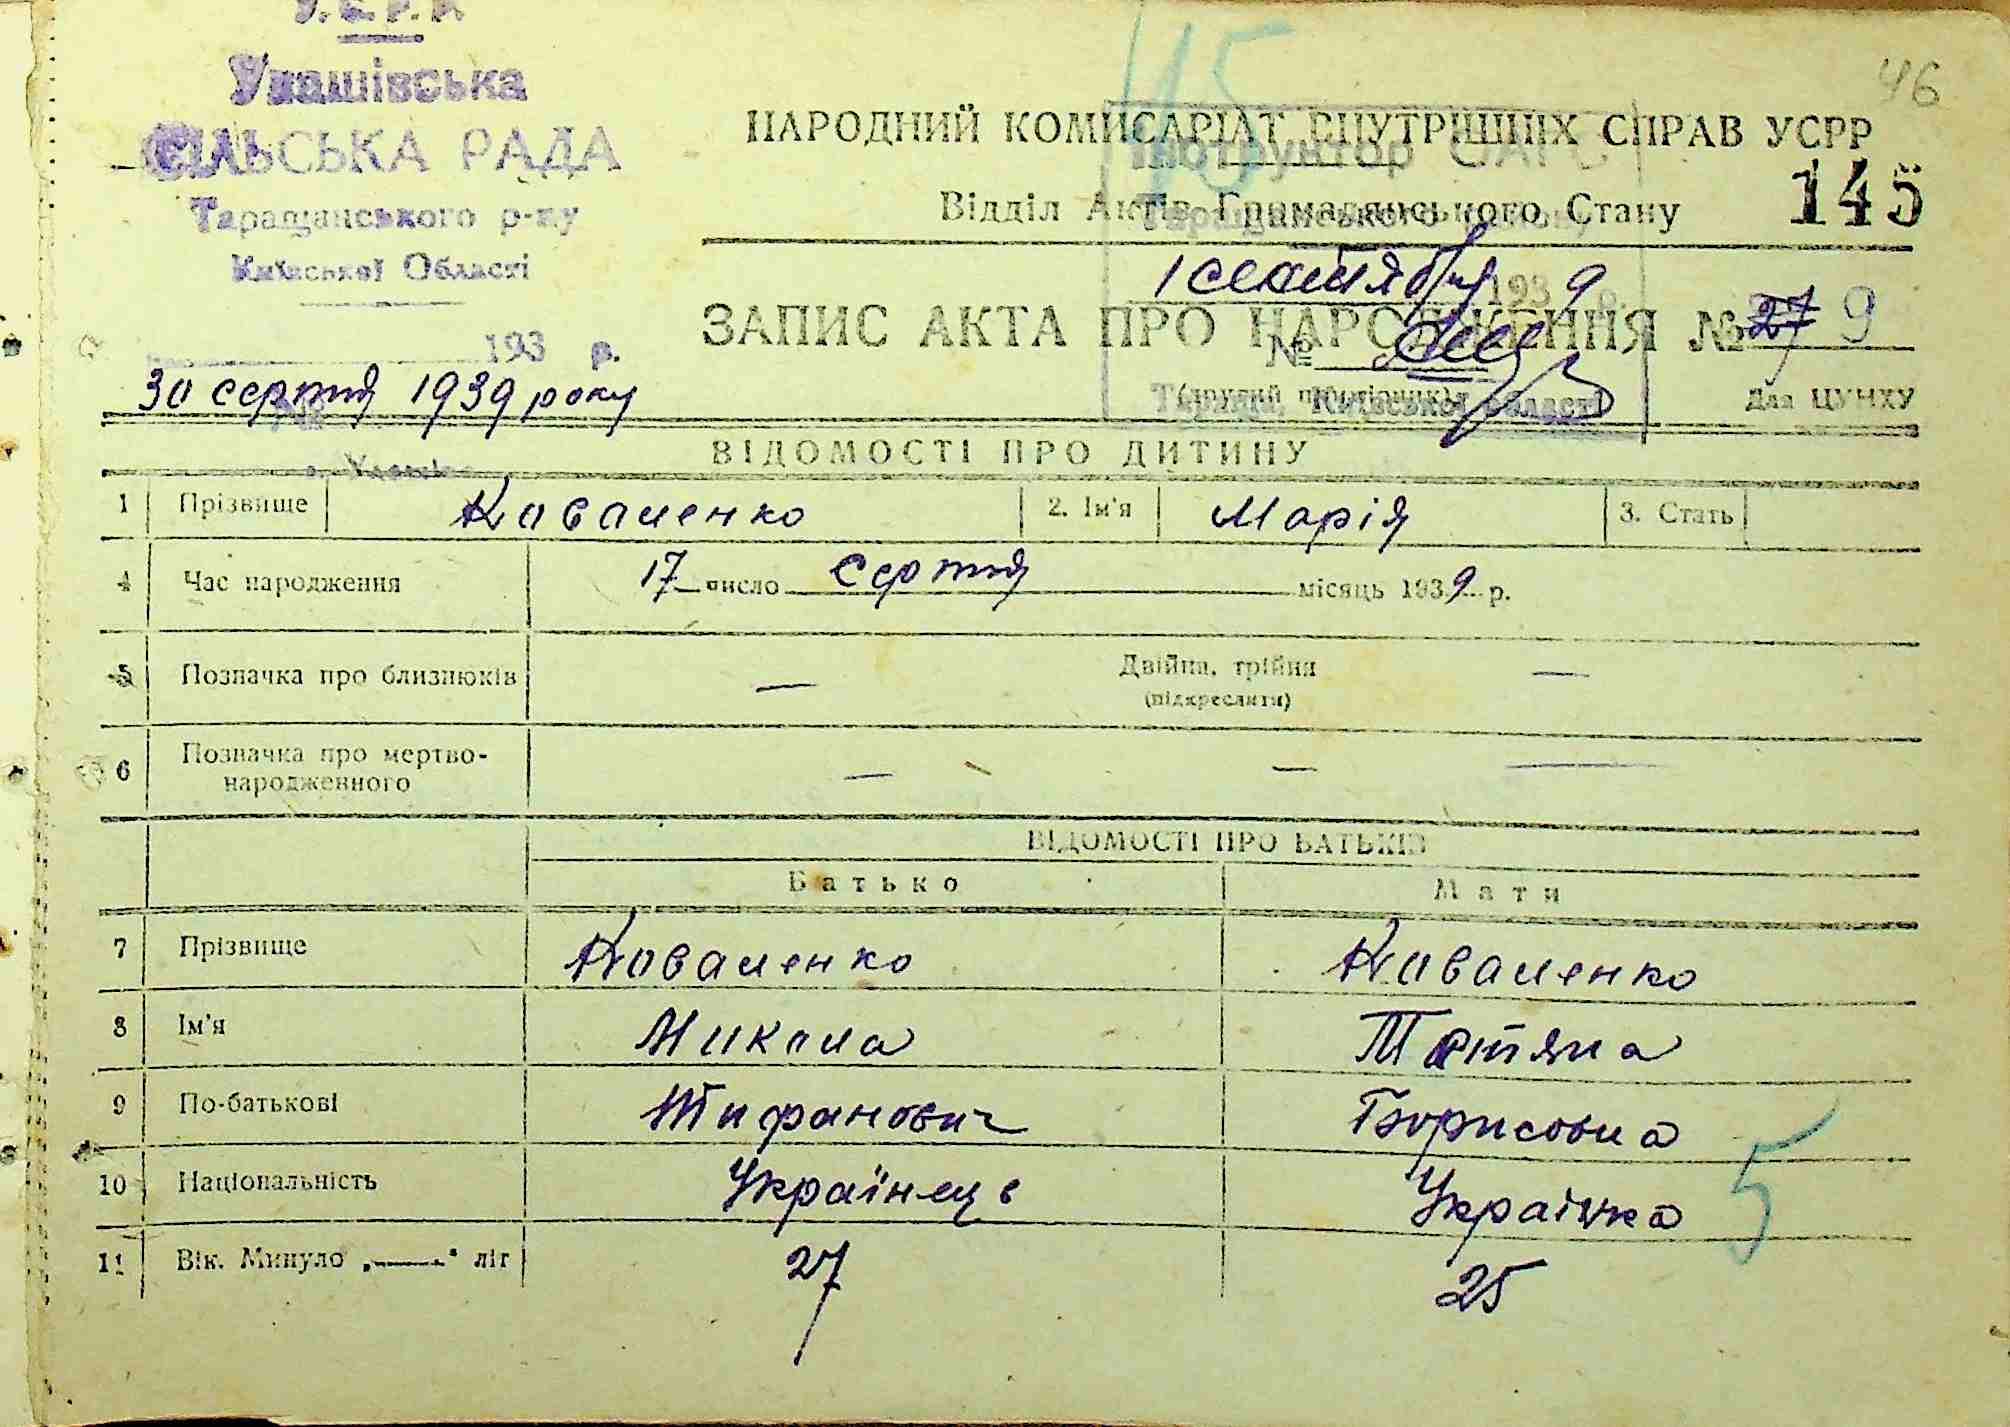 У.С.Р.Р.
Улашівська
СІЛЬСЬКА РАДА
Таращанського р-ну
Київської Області
193 р.
30 серпня 1939 року
46
НАРОДНИЙ КОМІСАРІАТ ВНУТРІШНІХ СПРАВ УСРР
Інструктор ЗАГС
Відділ Актів Громадянського Стану 145
Таращанського району
1 сентября 1939 р.
ЗАПИС АКТА ПРО НАРОДЖЕННЯ № 27 9
№
(другий примірник) Для ЦУНХУ
Тараща, Київської області
ВІДОМОСТІ ПРО ДИТИНУ
1 Прізвище Коваленко 2. Ім'я Марія 3. Стать
4 Час народження 17 число серпня місяць 1939 р.
5 Позначка про близнюків — Двійна, трійня —
(підкреслити)
6 Позначка про мертво-
народженного — — —
ВІДОМОСТІ ПРО БАТЬКІВ
Батько Мати
7 Прізвище Коваленко Коваленко
8 Ім'я Микола Татяна
9 По-батькові Тифанович Борисовна
10 Національність Українець Українка 5
11 Вік. Минуло „——" літ 27 25
15